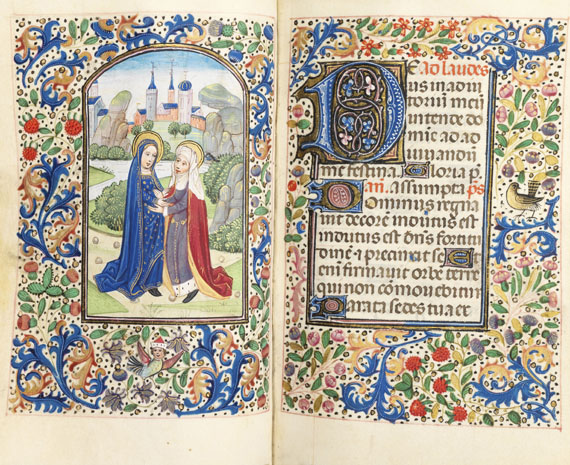 Ad laudes
Deus in adiu
toriū meū
intende do
mīe ad ad
iuuandū
me festina. Gloria p.
an̄. Assumpta ps̄
Dominus regna
uit decorē indutus est
indutus est dn̄s fortitu
dinē ⁊ precinxit se Et
eni firmauit orbē terre
qui non cōmouebitur
Parata sedes tua ex